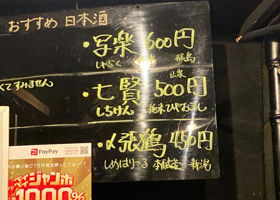 おすすめ 日本酒
くてすみません
・写楽 600円
しゃらく 福島
山梨
・七賢 500円
しちけん
・〆張鶴 450円
しめはりつる 本醸造 新潟
PayPay
ジャンボ
1000%